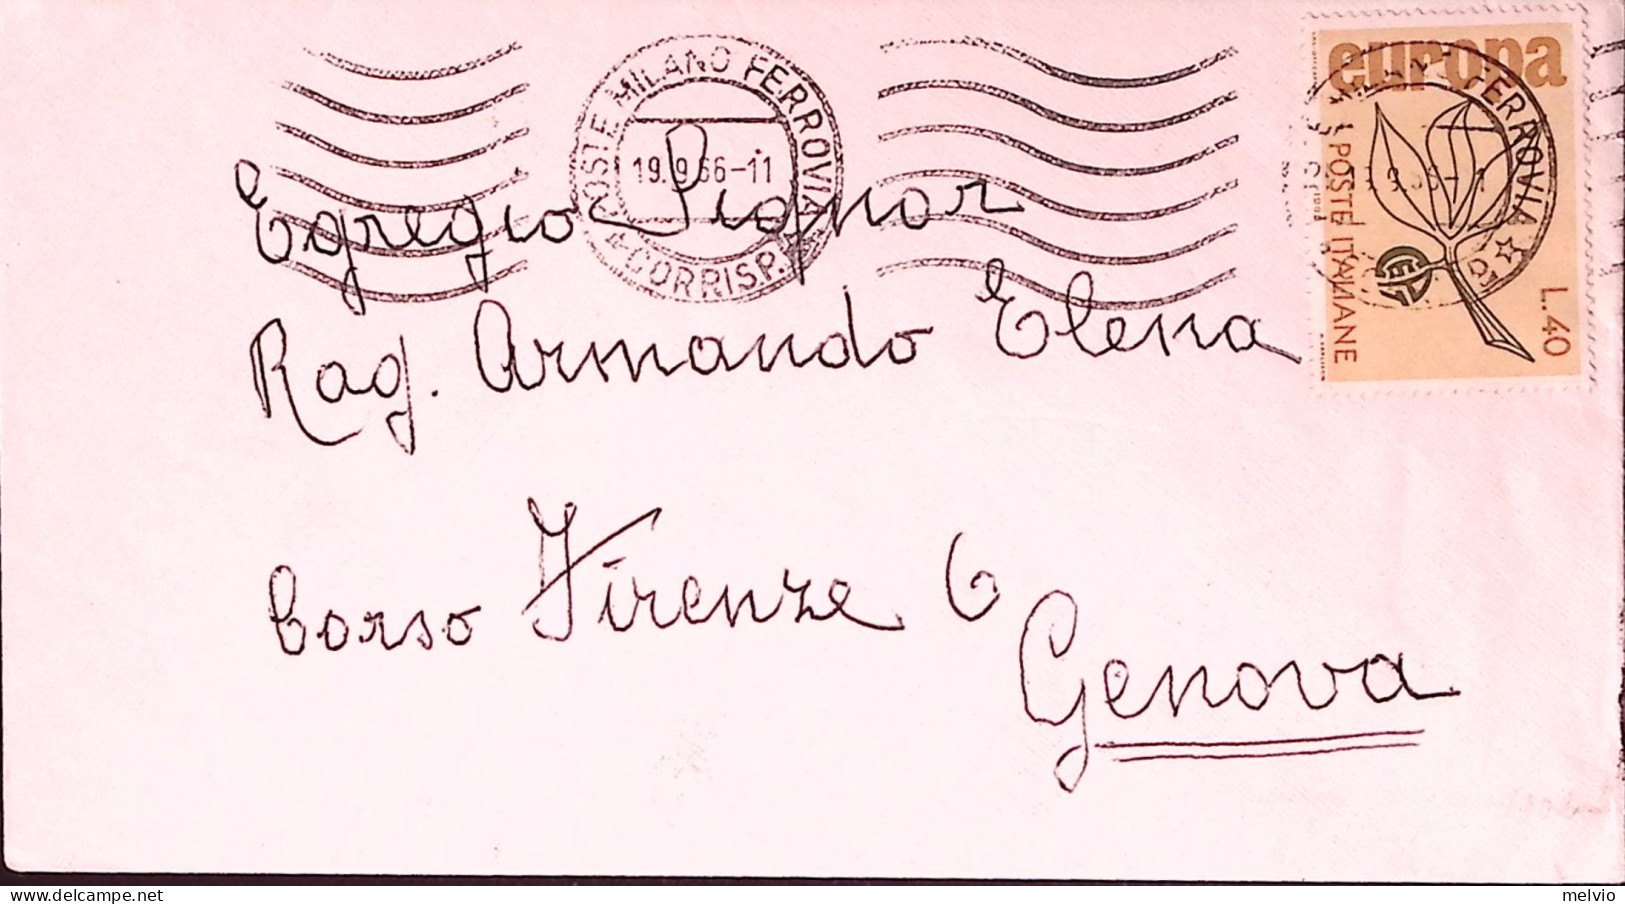 POSTE MILANO FERROVIA
19.9.66-11
CORRISP.
europa
POSTE ITALIANE
L.40
CEPT
FERROVIA
Egregio Signor
Rag. Armando Elena
Corso Firenze 6
Genova
melvio